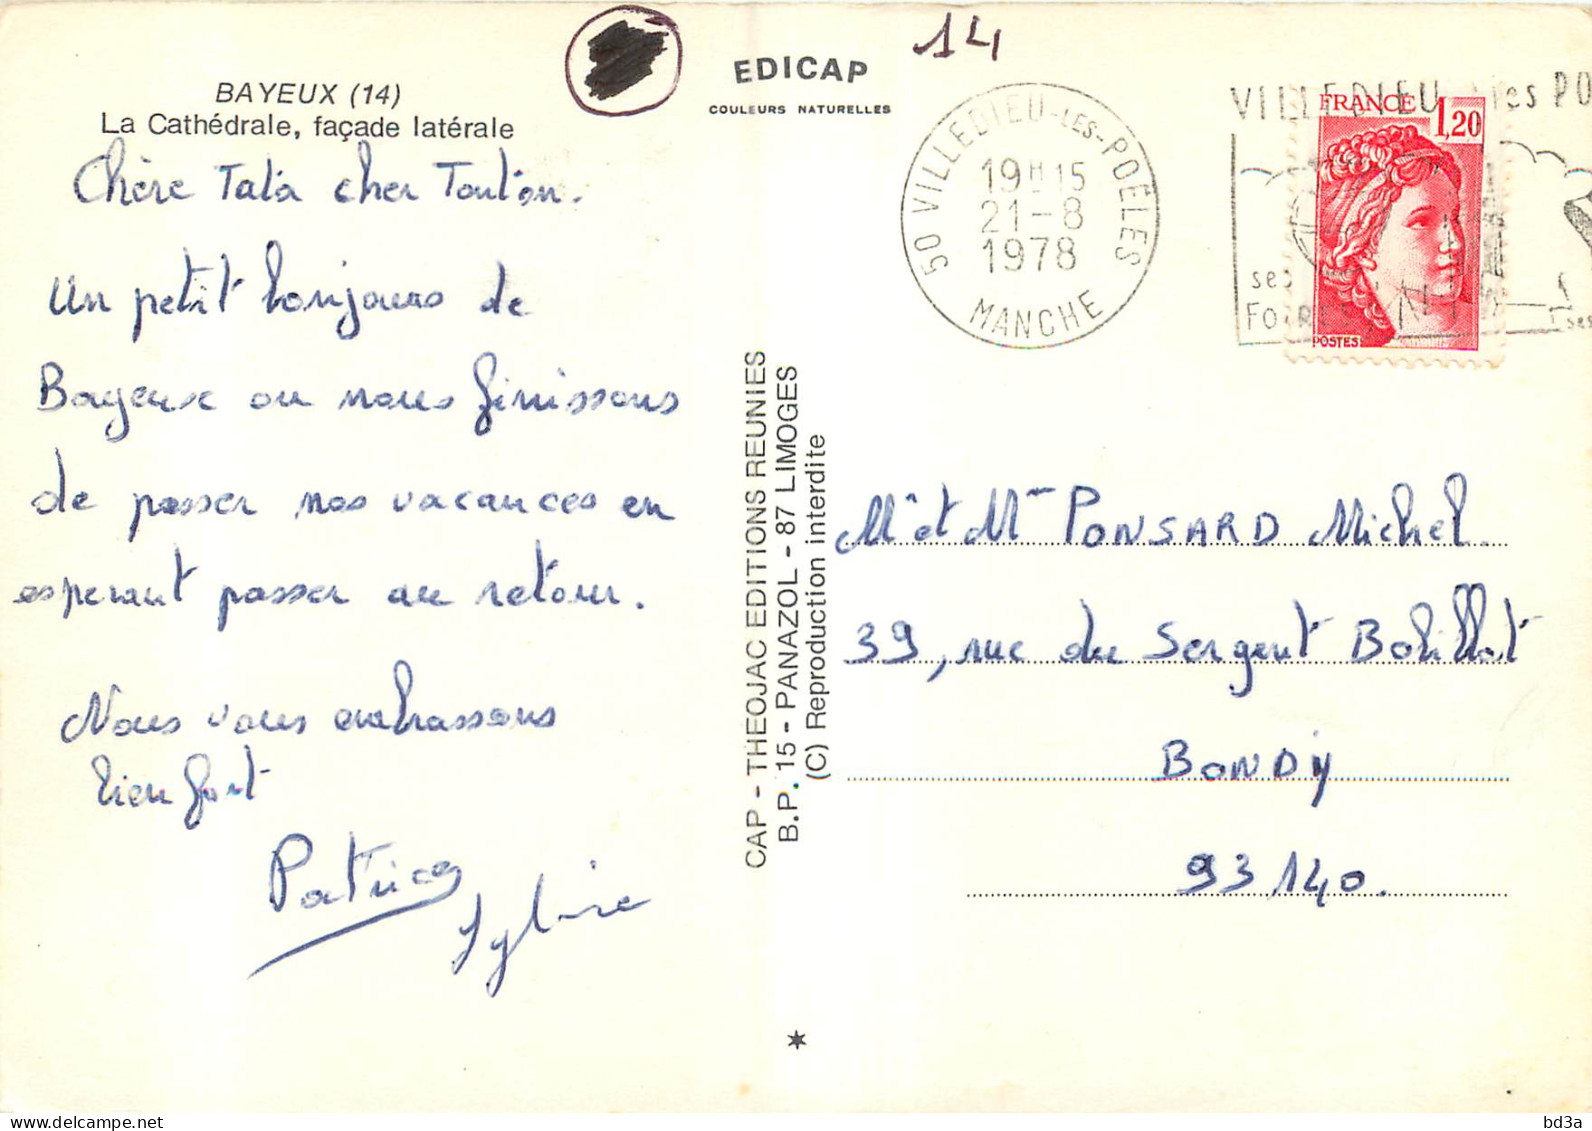 BAYEUX (14)
La Cathédrale, façade latérale
Chère Tata cher Tonton.
Un petit bonjours de
Bayeux ou nous finissons
de passer nos vacances en
esperant passer au retour.
Nous vous embrassons
bien fort
Patrice
Sylvie
EDICAP
COULEURS NATURELLES
14
50 VILLEDIEU-LES-POËLES
19H15
21-8
1978
MANCHE
VILLEDIEU les PO
ses
FOIRES
ses
FRANCE
1,20
POSTES
CAP - THEOJAC EDITIONS REUNIES
B.P. 15 - PANAZOL - 87 LIMOGES
(C) Reproduction interdite
Mr et Mme PONSARD Michel.
39, rue du Sergent Bobillot
BONDY
93140.
bd3a